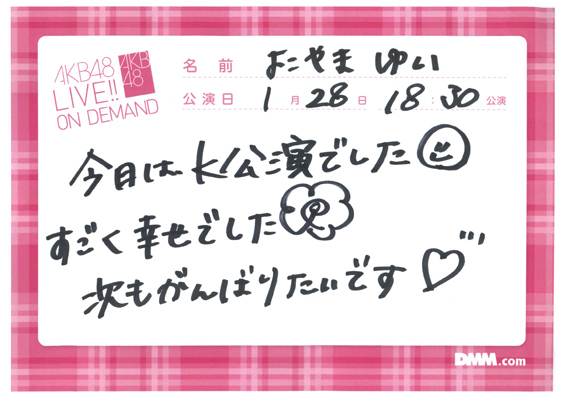 AKB48
LIVE!!
ON DEMAND
AKB
48
名 前 よこやま ゆい
公演日 1 月 28 日 18:30 公演
今日はK公演でした
すごく幸せでした
次もがんばりたいです
DMM.com